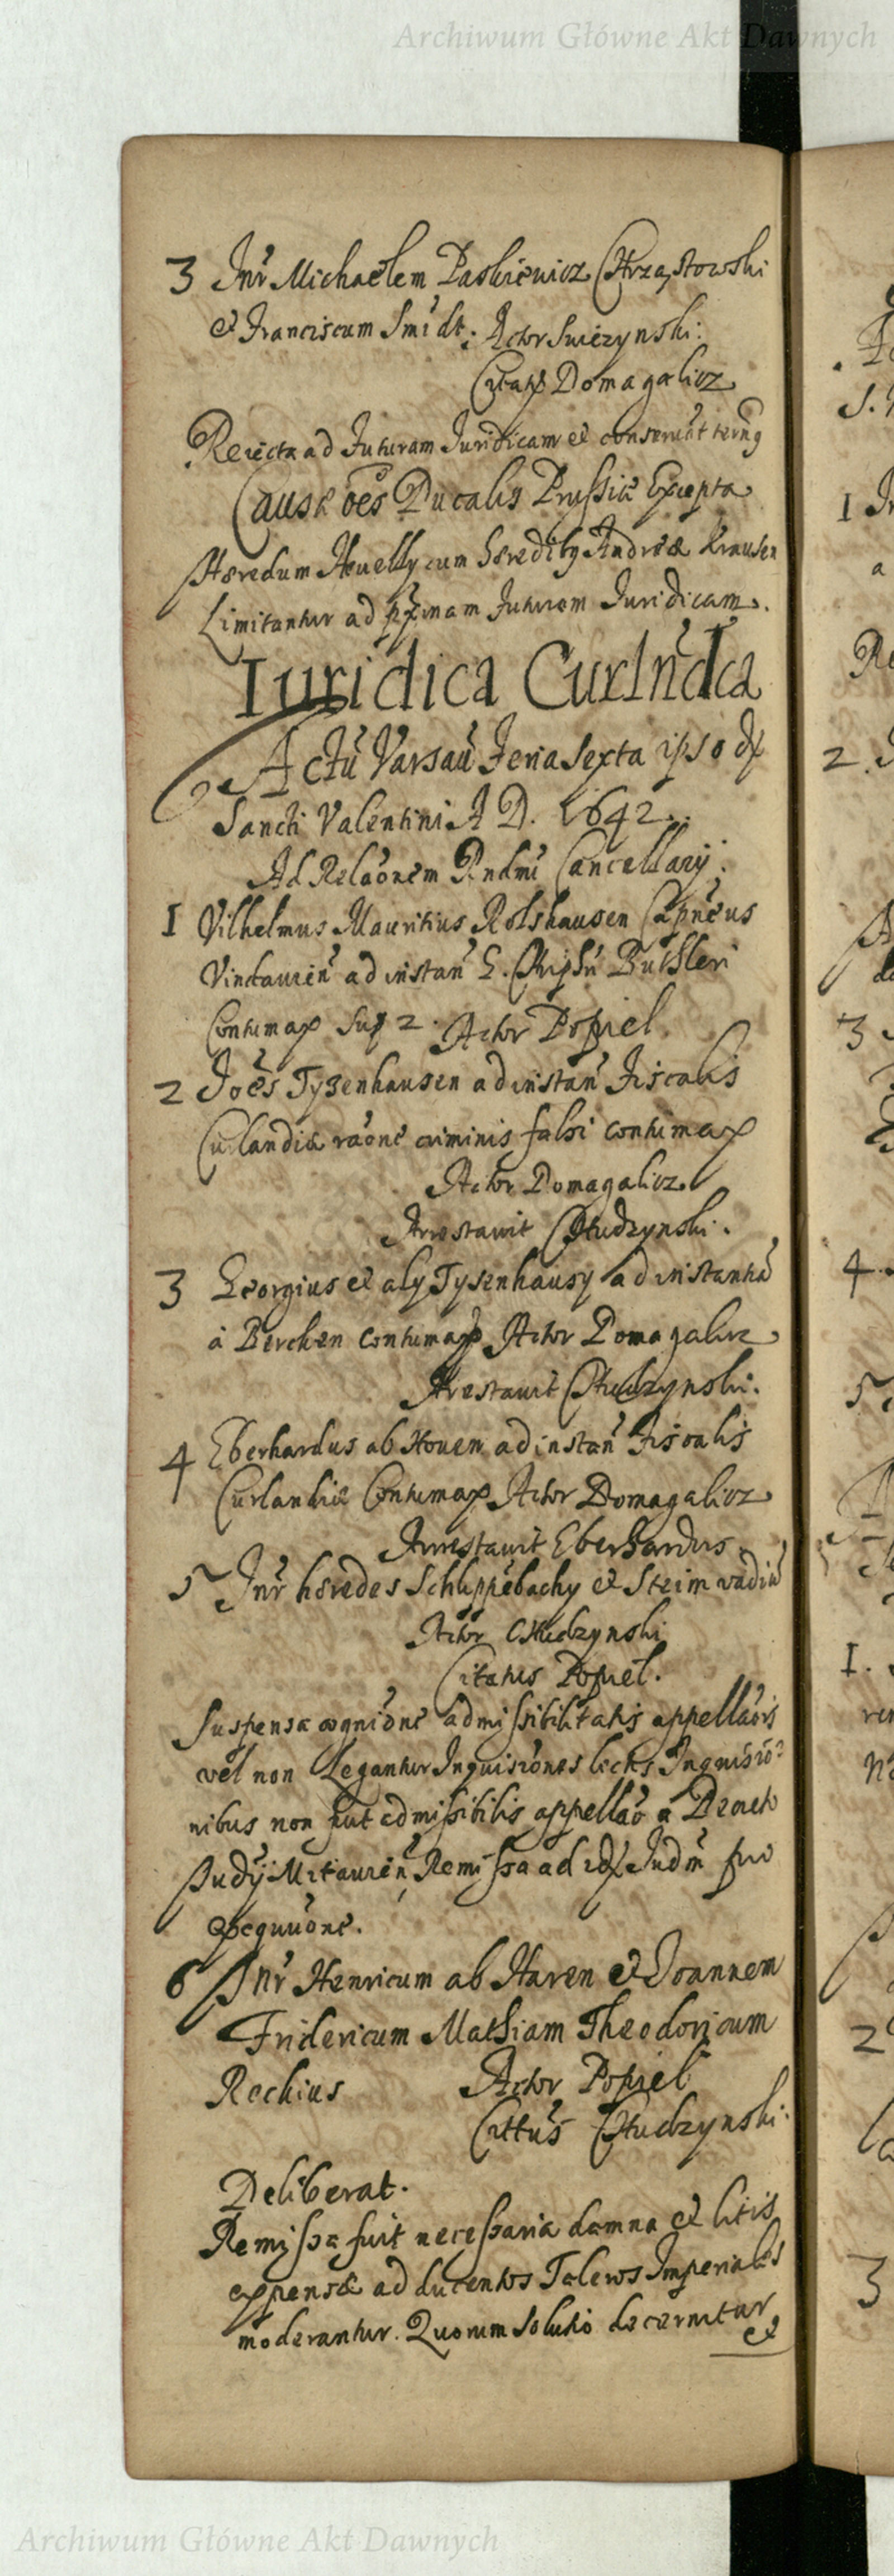 Archiwum Główne Akt Dawnych
3 Inr Michaelem Paskiewicz Chrząstowski
et Franciscum Smidt: Actor Swiezynski:
Citatq Domagalicz
Reiecta ad futuram Iuridicam et conservat
Causæ oēs Ducalis Prussiæ Excepta
Hæredum cum hæredibq Andreæ Krausen
Limitantur ad pximam futuram Iuridicam.
Iuridica Curlndca
Actū Varsav Feria Sexta ipso dx
Sancti Valentini A D. 1642.
Ad Relāonem Rndmi Cancellarij.
1 Vilhelmus Mauritius Rolshausen Capneus
Vindavien ad instan G. Buthleri
Contumax sup 2. Actor Popiel.
2 Joēs Tyzenhausen ad instan Fiscalis
Curlandiæ rāone criminis falsi contumax
Actor Domagalicz.
Arrestavit Chudzynski.
3 Georgius et alij Tysenhausy ad instantia
à Berchen contumax Actor Domagalicz
Arestavit Chudzynski.
4 Eberhardus ab Hoven ad instan Fiscalis
Curlandiæ Contumax Actor Domagalicz
Arrestavit Eberhardus
5 Inr hæredes Schlippēbachy et Steinvadiū
Actor Chudzynski
Citatus Popiel.
Suspensa cognione admissibilitatis appellaōis
vel non Legantur Inquisiones lectis Inquisio-
nibus non fuit admissibilis appellāo a Decreto
Judij Mitavien, Remissa ad idx Iudm pro
exequuōne.
6 Inr Henricum ab Haren et Joannem
Fridericum Mathiam Theodoricum
Reckius Actor Popiel
Cittus Chudzynski:
Deliberat.
Remissa fuit necessaria damna et litis
expensæ ad ducentos Taleros Imperiales
moderantur. Quorum solutio decernitur
et
Archiwum Główne Akt Dawnych